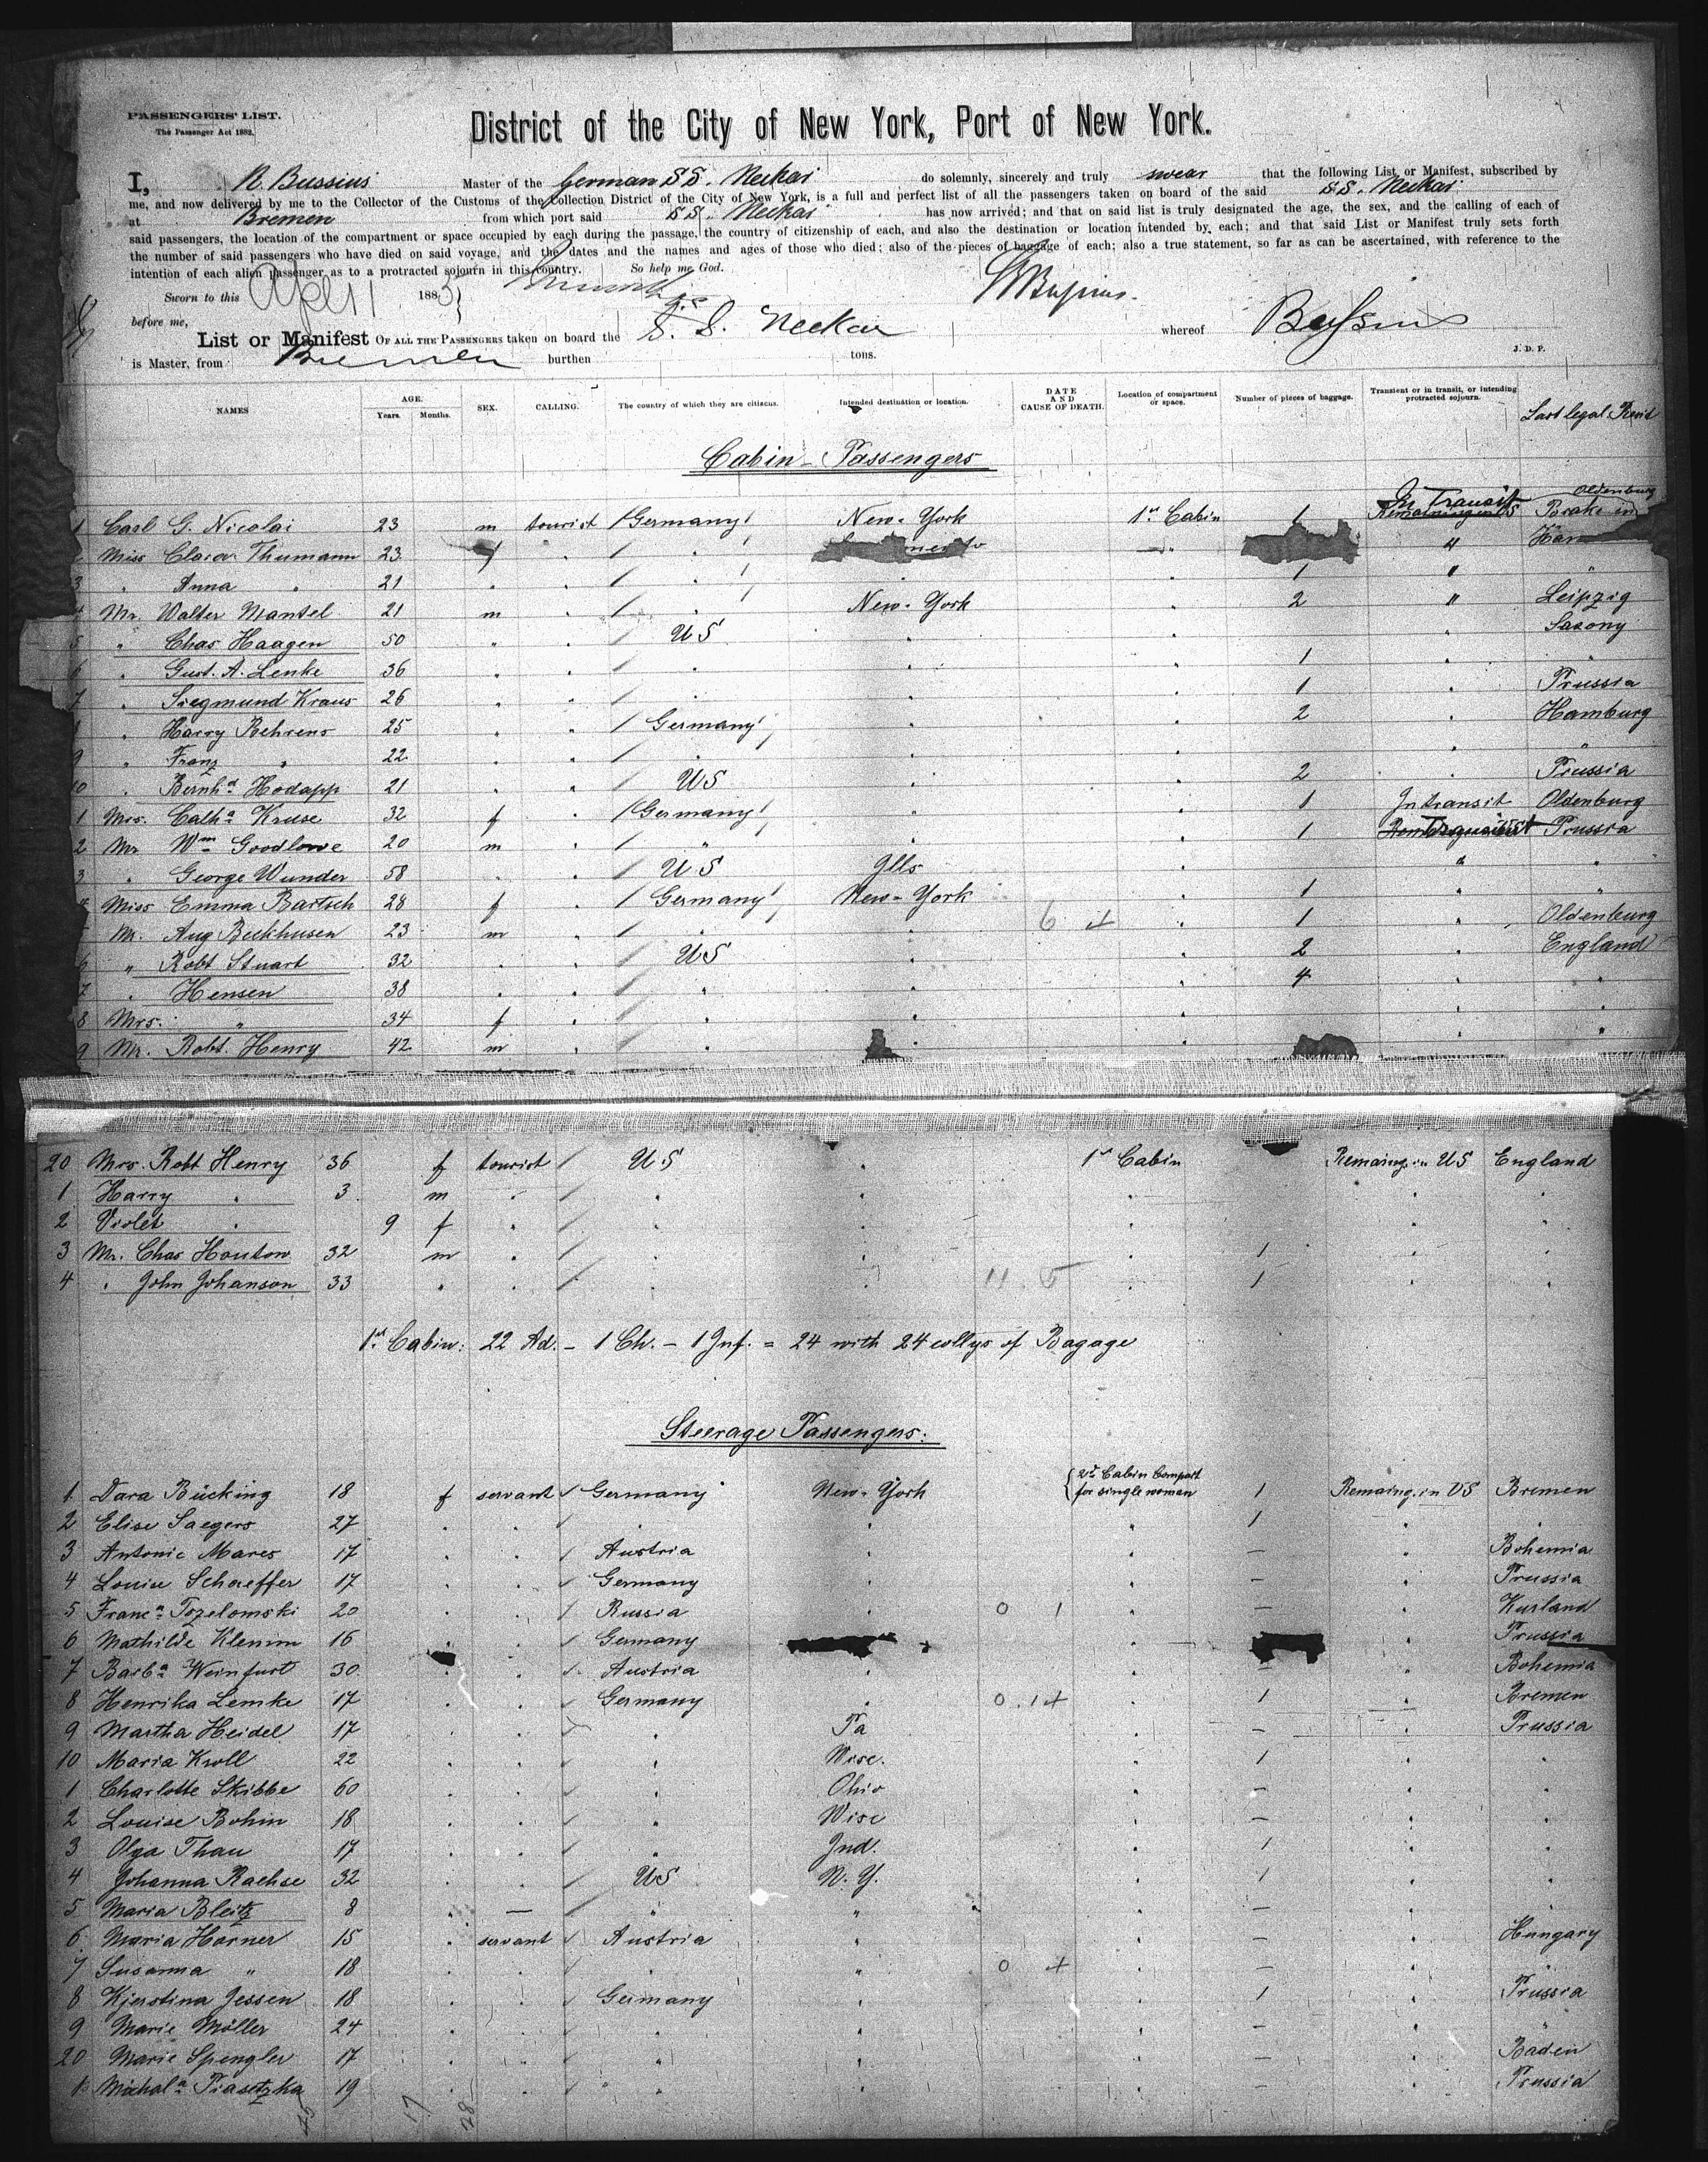 PASSENGERS' LIST.
The Passenger Act 1882.
District of the City of New York, Port of New York.
I, R. Bussius Master of the German SS. Neckar do solemnly, sincerely and truly swear that the following List or Manifest, subscribed by
me, and now delivered by me to the Collector of the Customs of the Collection District of the City of New York, is a full and perfect list of all the passengers taken on board of the said SS. Neckar
at Bremen from which port said SS. Neckar has now arrived; and that on said list is truly designated the age, the sex, and the calling of each of
said passengers, the location of the compartment or space occupied by each during the passage, the country of citizenship of each, and also the destination or location intended by each; and that said List or Manifest truly sets forth
the number of said passengers who have died on said voyage, and the dates and the names and ages of those who died; also of the pieces of baggage of each; also a true statement, so far as can be ascertained, with reference to the
intention of each alien passenger as to a protracted sojourn in this country. So help me God.
Sworn to this 188
before me,
List or Manifest OF ALL THE PASSENGERS taken on board the S. S. Neckar whereof Bussius
is Master, from Bremen burthen tons.
J. D. P.
NAMES AGE. Years. Months. SEX. CALLING. The country of which they are citizens. Intended destination or location. DATE AND CAUSE OF DEATH. Location of compartment or space. Number of pieces of baggage. Transient or in transit, or intending protracted sojourn. Last legal Resid
Cabin-Passengers
1 Carl G. Nicolai 23 m tourist Germany New-York 1st Cabin 1 In Transit Brake in Oldenburg
Miss Clara Thumann 23 f " " " "
3 " Anna " 21 " " " " 1 "
4 Mr. Walter Mantel 21 m " " New-York 2 " Leipzig
5 " Chas Haagen 50 " " US " " Saxony
6 " Gust. A. Lenke 36 " " " " " 1 " "
7 " Siegmund Kraus 26 " " " " " 1 " Prussia
8 " Harry Behrens 25 " " Germany " " 2 " Hamburg
9 " Franz " 22 " " " " " " "
10 " Bernhd Hodapp 21 " " US " " 2 " Prussia
1 Mrs. Catha Kruse 32 f " Germany " " 1 In transit Oldenburg
2 Mr Wm Goodlowe 20 m " " " " 1 Prussia
3 " George Wunder 58 " " US Ills " " "
4 Miss Emma Bartsch 28 f " Germany New-York " 1 " "
Mr. Aug Beckhusen 23 m " " " 6 + " 1 " Oldenburg
6 " Robt Stuart 32 " " US " " 2 " England
7 " Hensen 38 " " " " " 4 " "
8 Mrs. " 34 f " " " " " "
9 Mr. Robt. Henry 42 m " " " " " "
20 Mrs. Robt Henry 36 f tourist US " 1st Cabin Remaing in US England
1 Harry " 3 m " " " " " "
2 Violet " 9 f " " " " " "
3 Mr. Chas Houton 32 m " " " " 1 " "
4 " John Johanson 33 " " " " 11 5 " 1 " "
1st Cabin: 22 Ad. - 1 Ch. - 1 Inf. = 24 with 24 collys of Bagage
Steerage Passengers:
1 Dora Bücking 18 f servant Germany New-York 2nd Cabin Compart for single woman 1 Remaing in US Bremen
2 Elise Saegers 27 " " " " " 1 " "
3 Antonie Mares 17 " " Austria " " - " Bohemia
4 Louise Schaeffer 17 " " Germany " " - " Prussia
5 Franca Tozelomski 20 " " Russia " 0 1 " - " Kurland
6 Mathilde Klemm 16 " " Germany " " " Prussia
7 Barba Weinfurt 30 " " Austria " " - " Bohemia
8 Henrika Lemke 17 " " Germany " 0 1+ " 1 " Bremen
9 Martha Heidel 17 " " " Pa " - " Prussia
10 Maria Kroll 22 " " " Wisc. " 1 " "
1 Charlotte Skibbe 60 " " " Ohio " - " "
2 Louise Bohm 18 " " " Wisc " - " "
3 Olga Thau 17 " " " Ind. " 1 " "
4 Johanna Rachse 32 " " US N.Y. " 1 " "
5 Maria Bleitz 8 " - " " " - " "
6 Maria Horner 15 " servant Austria " " - " Hungary
7 Susanna " 18 " " " " 0 + " - " "
8 Kjerstina Jessen 18 " " Germany " " 1 " Prussia
9 Marie Möller 24 " " " " " - " "
20 Marie Spengler 17 " " " " " - " Baden
1 Michala Piasetzka 19 " " " " " - " Prussia